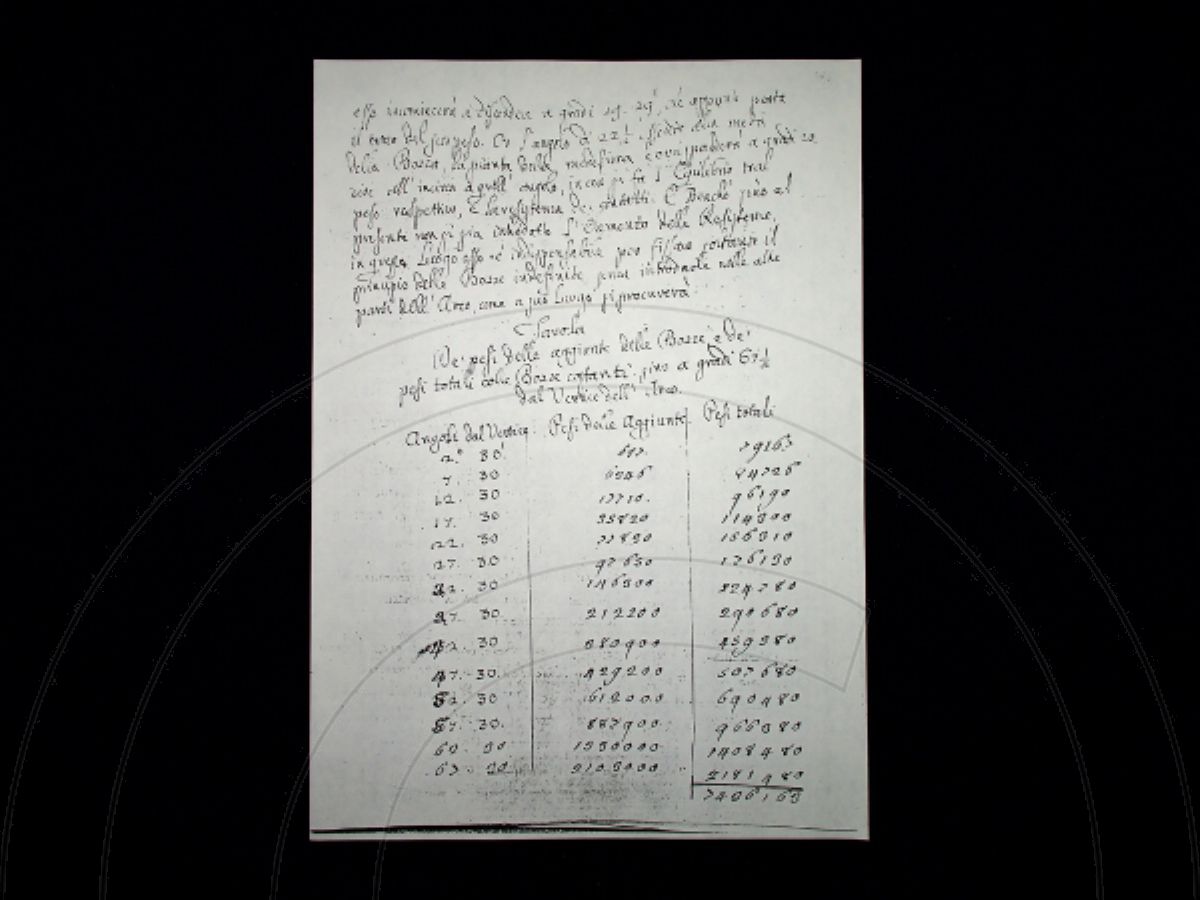 esso incomincerà a discendere a gradi 29. 29', ciò appunto porta
il corso del suo peso. Or l'angolo di 22½ essendo alla metà
della Bozza, la pianta della indefinita corrisponderà a gradi 20
cioè all'incirca a quell'angolo, in cui si fa l'Equilibrio tral
peso rispettivo, e la resistenza de'. E Benché sino al
presente non si sia introdotto l'Elemento delle Resistenze,
in questo Luogo esso è indispensabile per fissare costante il
principio delle Bozze indefinite senza introdurle nelle altre
parti dell'Arco, come a suo Luogo si procurerà
Tavola
De' pesi delle aggiunte delle Bozze, e de'
pesi totali colle Bozze costanti sino a gradi 67½
dal Vertice dell'Arco.
Angoli dal Vertice. Pesi delle Aggiunte Pesi totali
2.° 30'. 687. 79163
7. 30 6246 84726
12. 30 17710. 96190
17. 30 35820 114300
22. 30
27. 30 97650 176130
32. 30 146300 224780
37. 30 212200 290680
42. 30
47. 30. 429200 507680
52. 30 612000 690480
57. 30. 887900 966380
62. 30 1330000 1408480
67. 30 2103000 2181480